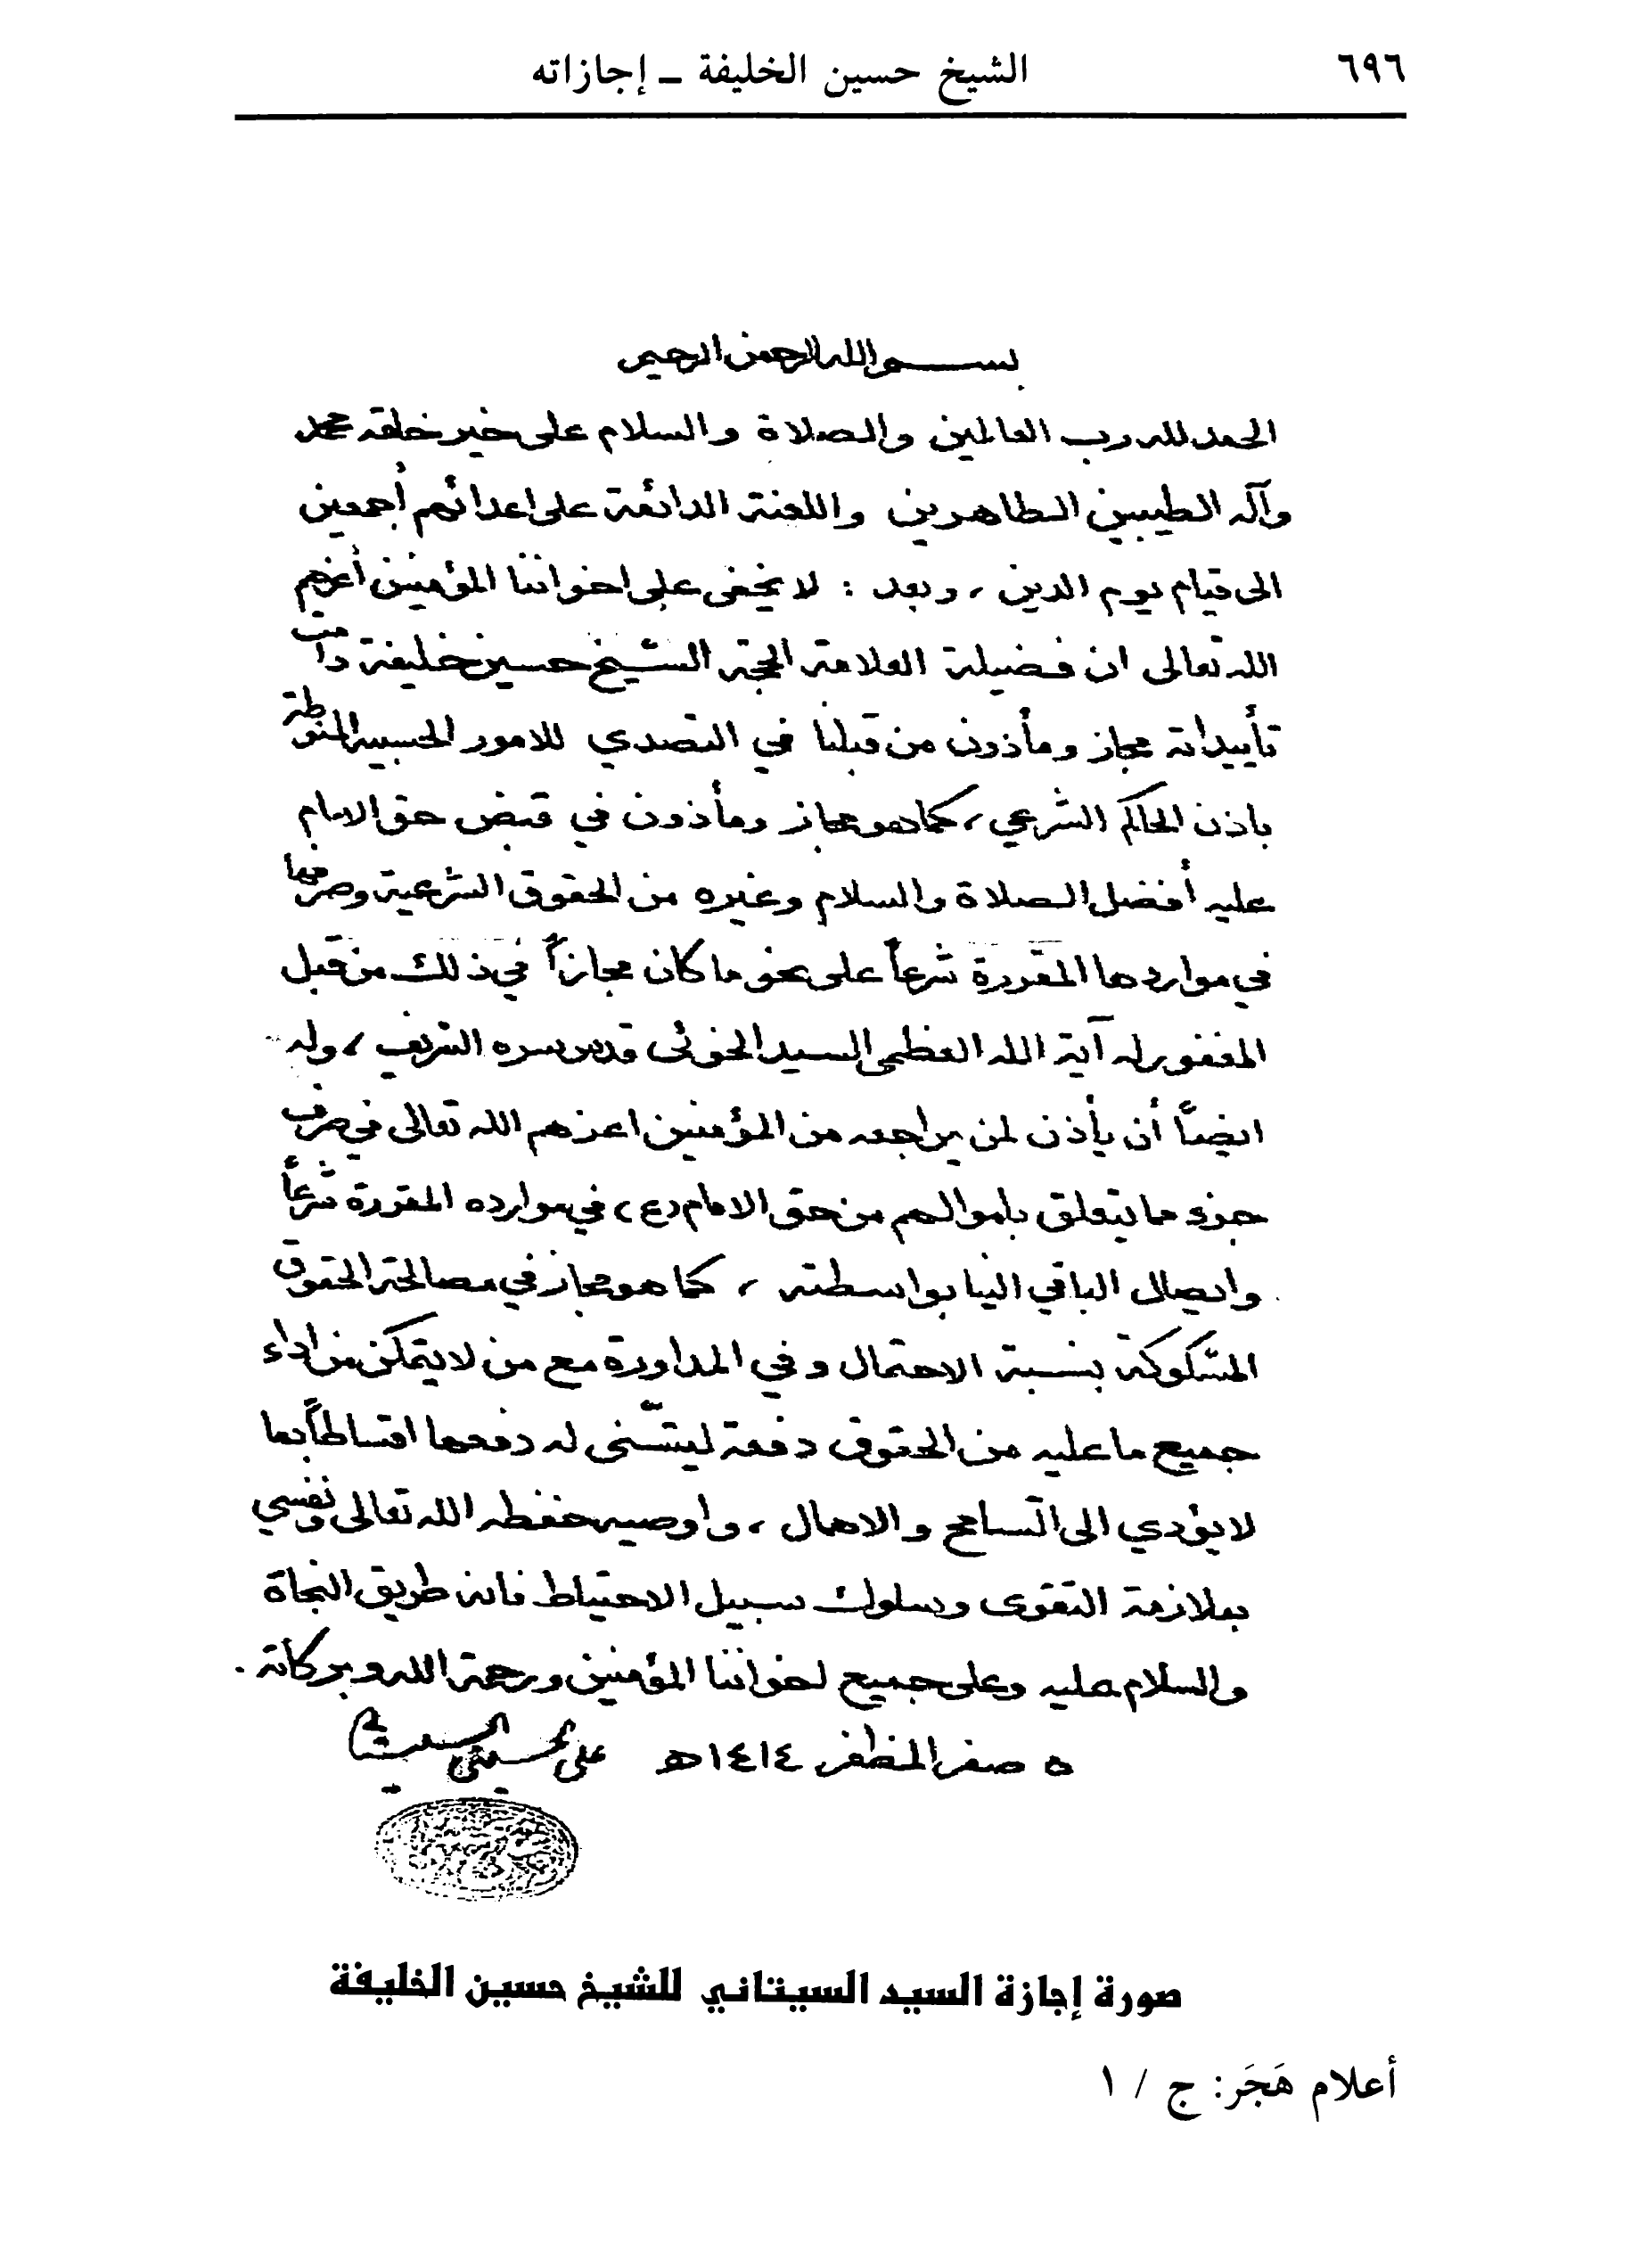 ٦٩٦ الشيخ حسين الخليفة ــ إجازاته
بسم الله الرحمن الرحيم
الحمد لله رب العالمين والصلاة والسلام على خير خلقه محمد
وآله الطيبين الطاهرين واللعنة الدائمة على اعدائهم أجمعين
الى قيام يوم الدين ، وبعد : لا يخفى على اخواننا المؤمنين أعزهم
الله تعالى ان فضيلة العلامة الحجة الشيخ حسين خليفة دامت
تأييداته مجاز ومأذون من قبلنا في التصدي للامور الحسبية المنوطة
باذن الحاكم الشرعي ، كما هو مجاز ومأذون في قبض حق الامام
عليه أفضل الصلاة والسلام وغيره من الحقوق الشرعية وصرفها
في مواردها المقررة شرعاً على نحو ما كان مجازاً في ذلك من قبل
المغفور له آية الله العظمى السيد الخوئى قدس سره الشريف ، وله
ايضاً أن يأذن لمن يراجعه من المؤمنين اعزهم الله تعالى في صرف
جزء مما يتعلق باموالهم من حق الامام (ع) في موارده المقررة شرعاً
وايصال الباقي الينا بواسطته ، كما هو مجاز في مصالحة الحقوق
المشكوكة بنسبة الاحتمال وفي المداورة مع من لا يتمكن من اداء
جميع ما عليه من الحقوق دفعة ليتسنى له دفعها اقساطاً بما
لا يؤدي الى التسامح والاهمال ، واوصيه حفظه الله تعالى ونفسي
بملازمة التقوى وسلوك سبيل الاحتياط فانه طريق النجاة
والسلام عليه وعلى جميع اخواننا المؤمنين ورحمة الله وبركاته .
٥ صفر المظفر ١٤١٤هـ علي الحسيني السيستاني
صورة إجازة السيد السيتاني للشيخ حسين الخليفة
أعلام هَجَر: ج / ١